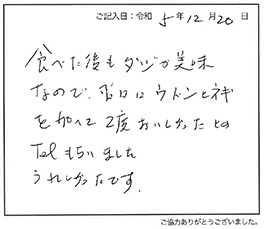 ご記入日：令和 5年 12月 20日
食べた後もダシが美味
なので、翌日にウドンとネギ
を加へて2度おいしかったとの
Telもらいました
うれしかったです.
ご協力ありがとうございました。